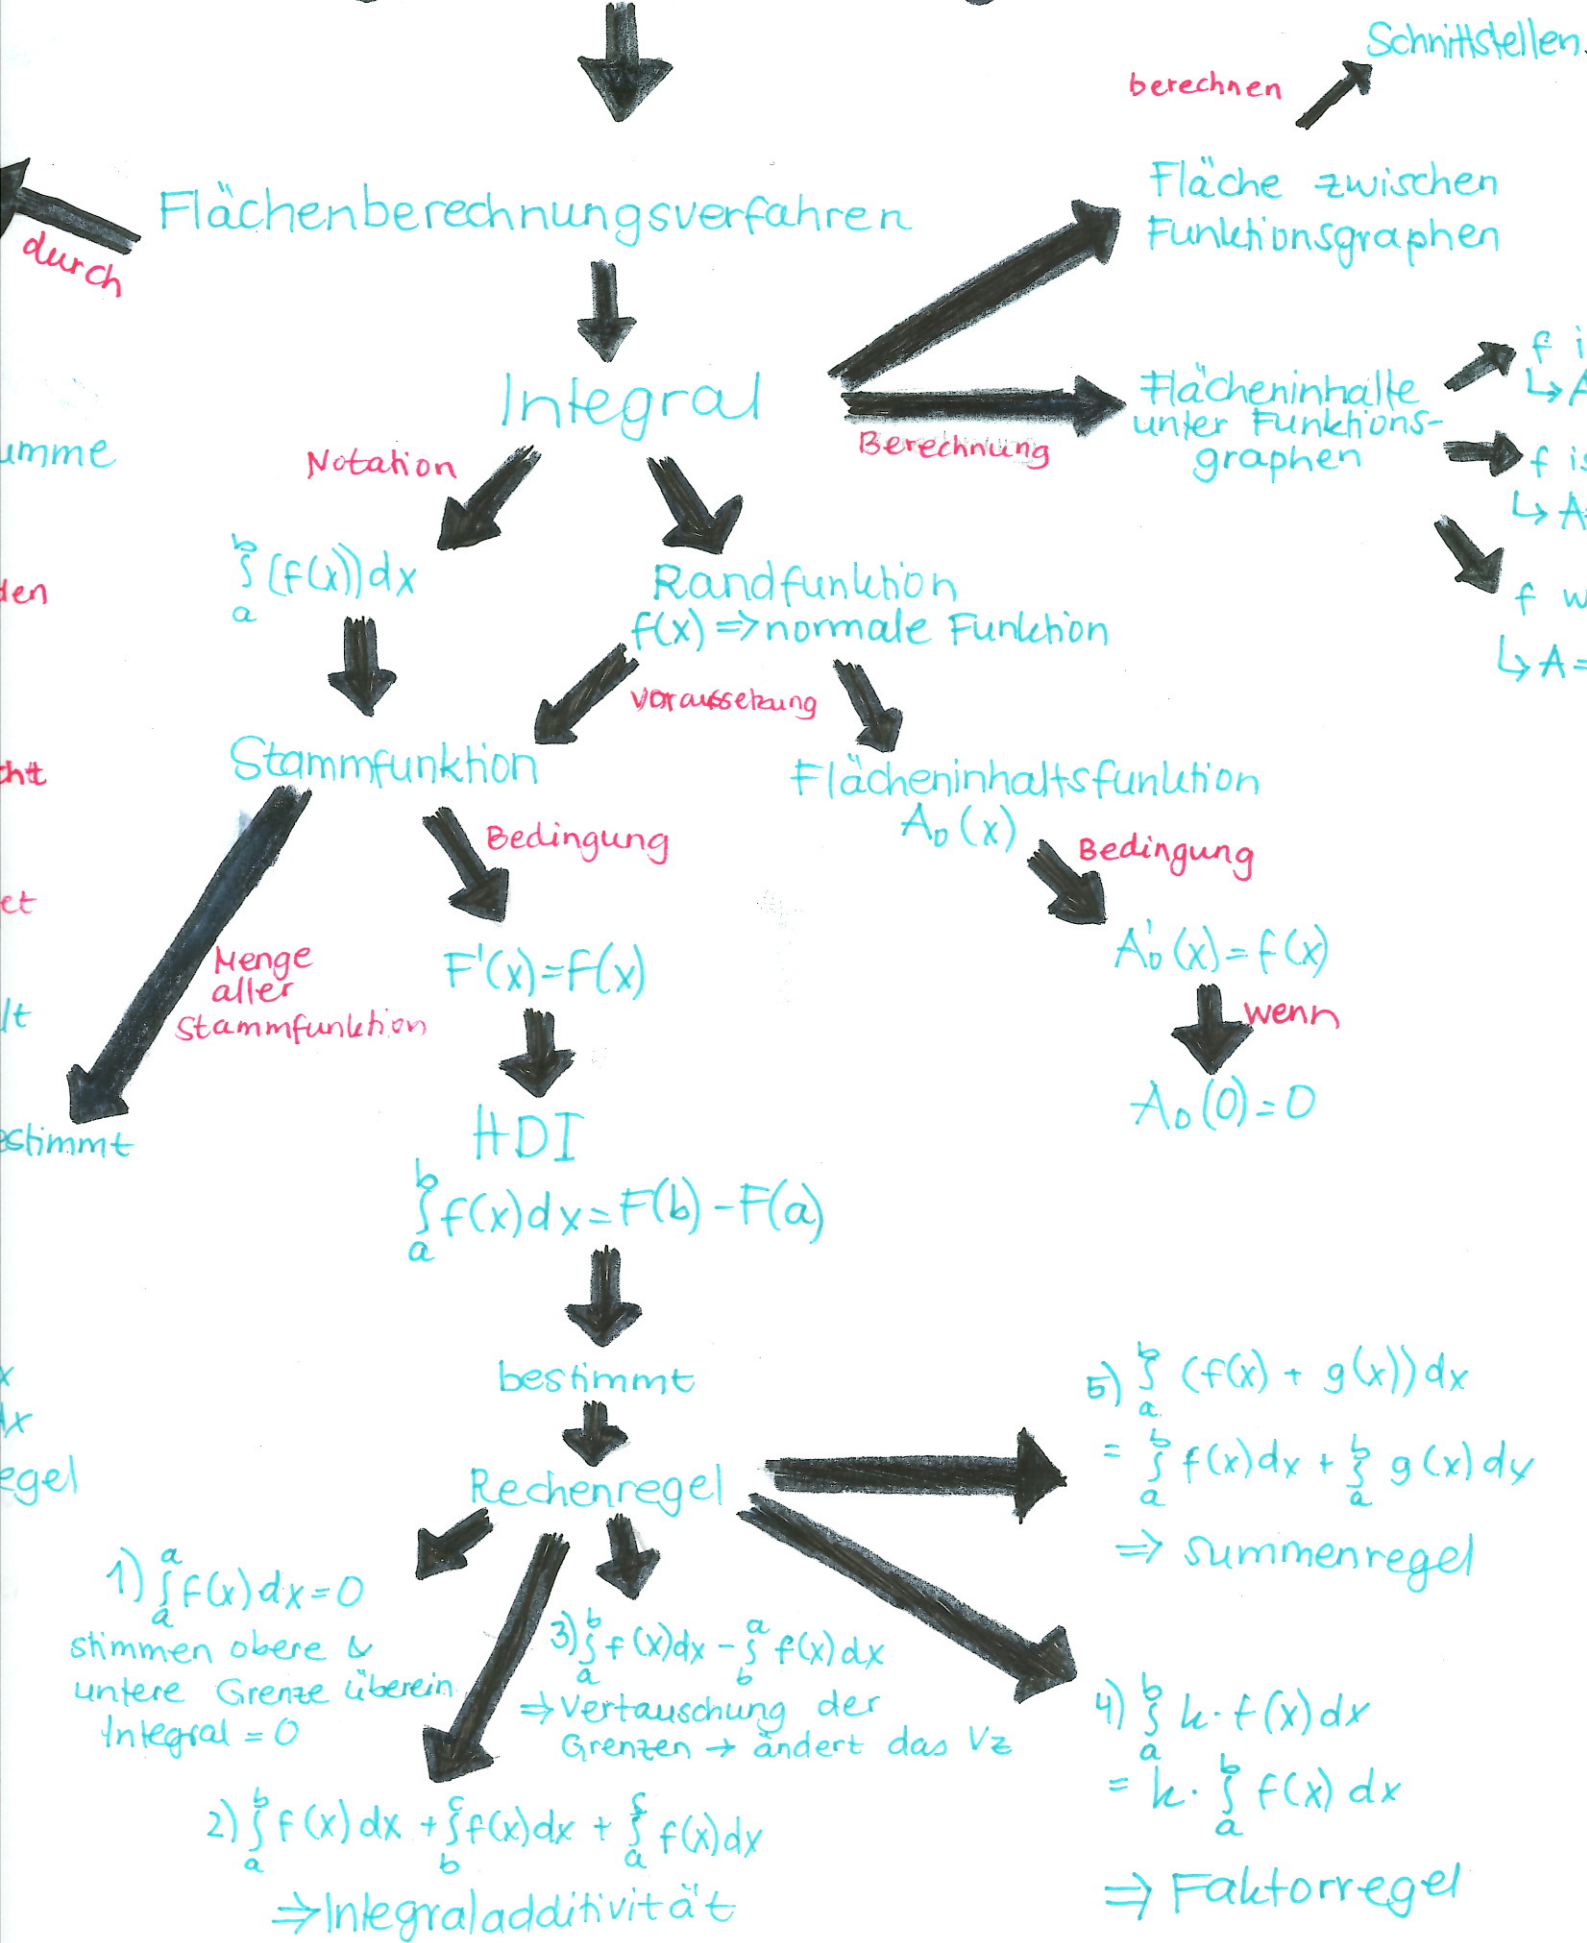 Schnittstellen.
berechnen
Fläche zwischen
Funktionsgraphen
Flächenberechnungsverfahren
durch
Integral
Berechnung
Flächeninhalte
unter Funktions-
graphen
f i
↳ A
f is
↳ A=
f w
↳ A =
umme
Notation
∫_a^b (f(x)) dx
den
Randfunktion
f(x) ⇒ normale Funktion
Voraussetzung
Stammfunktion
cht
Flächeninhaltsfunktion
A₀(x)
Bedingung
Bedingung
et
Menge
aller
Stammfunktion
F'(x)=f(x)
A₀'(x)=f(x)
wenn
lt
A₀(0)=0
HDI
estimmt
∫_a^b f(x)dx = F(b) - F(a)
bestimmt
x
dx
egel
Rechenregel
5) ∫_a^b (f(x) + g(x)) dx
= ∫_a^b f(x)dx + ∫_a^b g(x)dx
⇒ Summenregel
1) ∫_a^a f(x)dx = 0
stimmen obere &
untere Grenze überein
Integral = 0
3) ∫_a^b f(x)dx - ∫_b^a f(x)dx
⇒ Vertauschung der
Grenzen → ändert das Vz
4) ∫_a^b k · f(x)dx
= k · ∫_a^b f(x) dx
⇒ Faktorregel
2) ∫_a^b f(x)dx + ∫_b^c f(x)dx + ∫_a^c f(x)dx
⇒ Integraladditivität